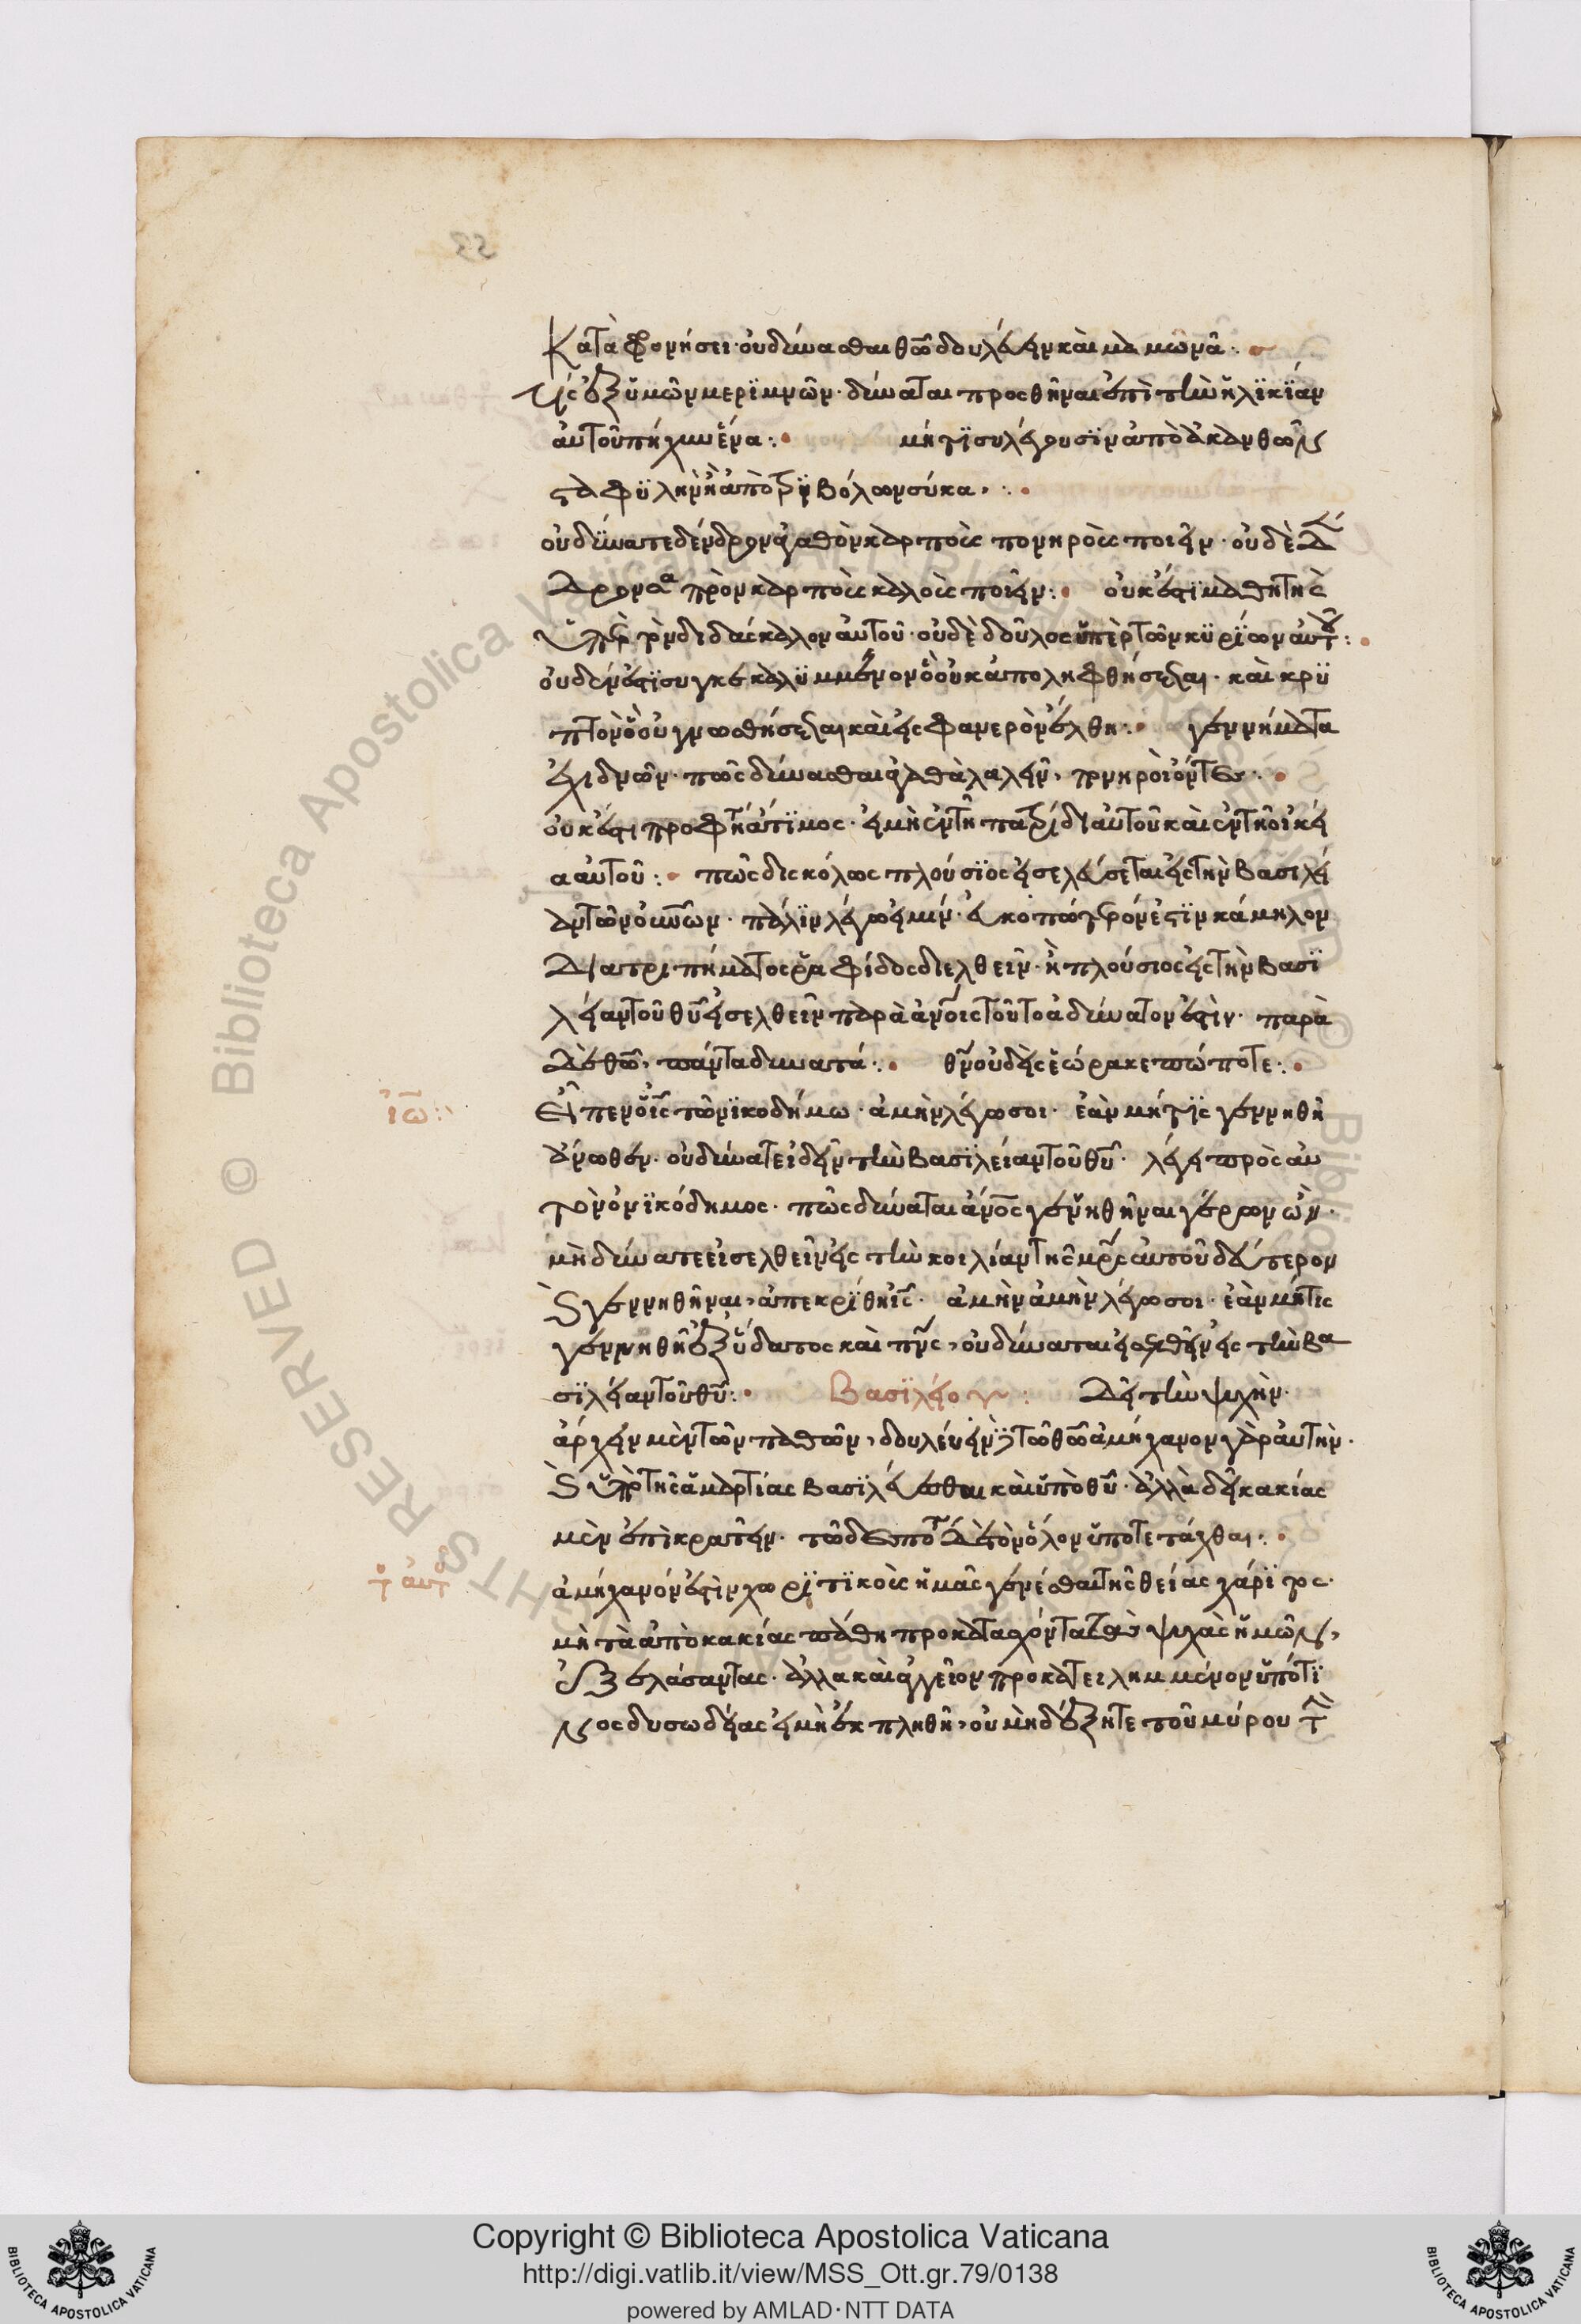 Καταφρονήσει· οὐ δύνασθαι θω δουλεύειν καὶ μαμωνᾶ:
τίς ἐξ ὑμῶν μεριμνῶν· δύναται προσθῆναι ἐπὶ τὴν ἡλικίαν
αὐτοῦ πῆχυν ἕνα: μήτι συλέγουσιν ἀπὸ ἀκανθῶν
σταφυλὴν ἢ ἀπὸ τριβόλων σύκα·
οὐ δύναται δένδρον ἀγαθὸν καρποὺς πονηροὺς ποιεῖν· οὐδὲ δέν
δρον σαπρὸν καρποὺς καλοὺς ποιεῖν: οὐκ ἔστι μαθητὴς
ὑπὲρ τὸν διδάσκαλον αὐτοῦ· οὐδὲ δοῦλος ὑπὲρ τῶν κυρίων αὐτοῦ:
οὐδέν ἐστι συγκεκαλυμμένον ὃ οὐκ ἀποληφθήσεται· καὶ κρυ
πτον ὃ οὐ γνωσθήσεται καὶ εἰς φανερὸν ἔλθη: γεννήματα
ἐχιδνῶν· πῶς δύνασθαι ἀγαθὰ λαλεῖν, πονηροὶ ὄντες:
οὐκ ἔστι προφήτης ἄτιμος· εἰ μὴ ἐν τῆ πατρίδι αὐτοῦ καὶ ἐν τῆ οἰκεί
α αὐτοῦ: πῶς δισκόλως πλούσιος εἰσελεύσεται εἰς τὴν βασιλεί
αν τῶν οὐνῶν· πάλιν λέγω ὑμίν· εὐκοπώτερόν ἐστιν κάμηλον
διὰ τριπήματος ῥαφίδος διελθεῖν· ἢ πλούσιος εἰς τὴν βασι
λείαν τοῦ θυ εἰσελθεῖν παρὰ ἀνοις τοῦτο ἀδύνατον ἐστὶν· παρὰ
δὲ θω, πάντα δυνατά: θν οὐδεὶς ἑώρακε πώποτε:
ἰω:
Εἶπεν ὁ ις τῶ νικοδήμω· ἀμὴν λέγω σοι· ἐὰν μήτις γεννηθῆ
ἄνωθέν· οὐ δύναται ἰδεῖν τὴν βασιλείαν τοῦ θυ· λέγει πρὸς αὐ
τὸν ὁ νικόδημος· πῶς δύναται ἄνος γεννηθῆναι γέρων ὢν·
μὴ δύναται εἰσελθεῖν εἰς τὴν κοιλίαν τῆς μρς αὐτοῦ δεύτερον
καὶ γεννηθῆναι, ἀπεκρίθη ις· ἀμὴν ἀμὴν λέγω σοι· ἐὰν μήτις
γεννηθῆ ἐξ ὕδατος καὶ πνς, οὐ δύναται εἰσελθεῖν εἰς τὴν βα
σιλείαν τοῦ θυ: Βασιλείου: Δεῖ τὴν ψυχὴν·
ἄρχειν μὲν τῶν παθῶν, δουλεύειν δὲ τῶ θω ἀμήχανον γὰρ αὐτὴν·
καὶ ὑπὸ τῆς ἁμαρτίας βασιλεύεσθαι καὶ ὑπὸ θυ· ἀλλὰ δεῖ κακίας
μὲν ἐπικρατεῖν· τῶ δεσπότη δὲ τῶν ὅλων ὑποτετάχθαι:
τοῦ αὐτοῦ
ἀμήχανόν ἐστὶν χωρητικοὺς ἡμᾶς γενέσθαι τῆς θείας χάριτος·
μὴ τὰ ἀπὸ κακίας πάθη προκατασχόντα τὰς ψυχὰς ἡμῶν,
ἐξελάσαντας· ἀλλα καὶ ἀγγεῖον προκατειλημμένον ὑπό τι
νος δυσωδείας εἰ μὴ ἐκπληθῆ, οὐ μὴ δέξηται τοῦ μύρου τὴν
Copyright © Biblioteca Apostolica Vaticana
http://digi.vatlib.it/view/MSS_Ott.gr.79/0138
powered by AMLAD·NTT DATA